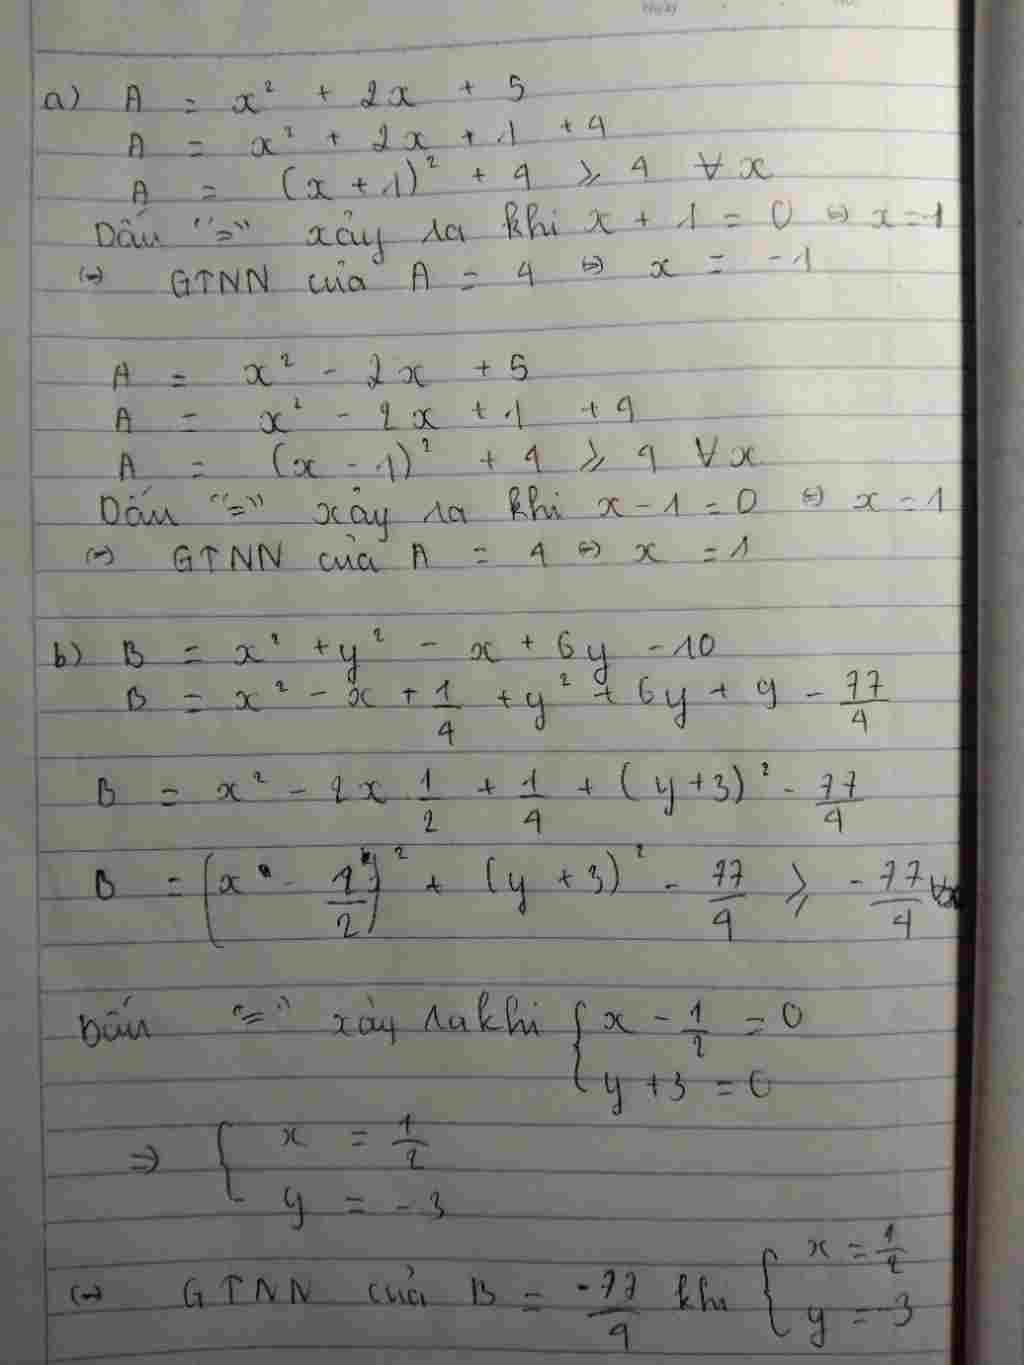 a) A = x² + 2x + 5
A = x² + 2x + 1 + 4
A = (x + 1)² + 4 ≥ 4 ∀x
Dấu "=" xảy ra khi x + 1 = 0 ⇔ x = -1
⇔ GTNN của A = 4 ⇔ x = -1
A = x² - 2x + 5
A = x² - 2x + 1 + 4
A = (x - 1)² + 4 ≥ 4 ∀x
Dấu "=" xảy ra khi x - 1 = 0 ⇔ x = 1
⇔ GTNN của A = 4 ⇔ x = 1
b) B = x² + y² - x + 6y - 10
B = x² - x + 1/4 + y² + 6y + 9 - 77/4
B = x² - 2x 1/2 + 1/4 + (y+3)² - 77/4
B = (x - 1/2)² + (y + 3)² - 77/4 ≥ -77/4 ∀x
Dấu "=" xảy ra khi { x - 1/2 = 0
y + 3 = 0
⇒ { x = 1/2
y = -3
⇔ GTNN của B = -77/4 khi { x = 1/2
y = -3